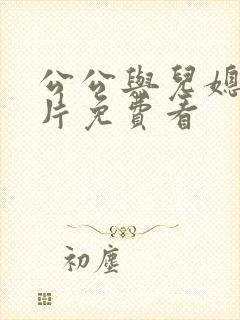 公公與兒媳
片免費看
初塵